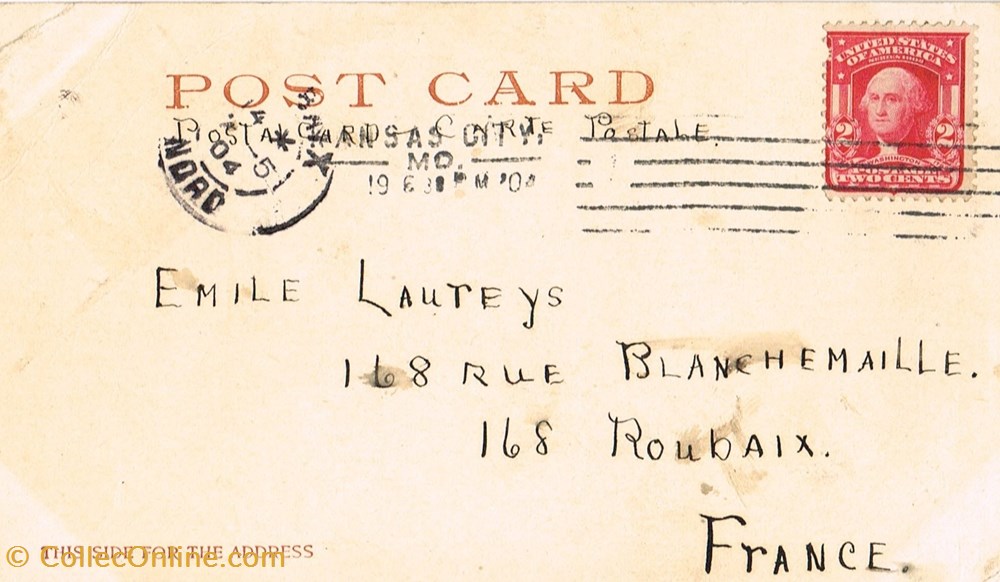 POST CARD
POSTAL CARD - CARTE POSTALE.
UNITED STATES
OF AMERICA
SERIES 1902
2 2
WASHINGTON
POSTAGE
TWO CENTS
KANSAS CITY,
MO.
19 6 30 PM '04
ROUBAIX
5
04
NORD
EMILE LAUTEYS
168 RUE BLANCHEMAILLE.
168 ROUBAIX.
FRANCE.
THIS SIDE FOR THE ADDRESS
© CollecOnline.com